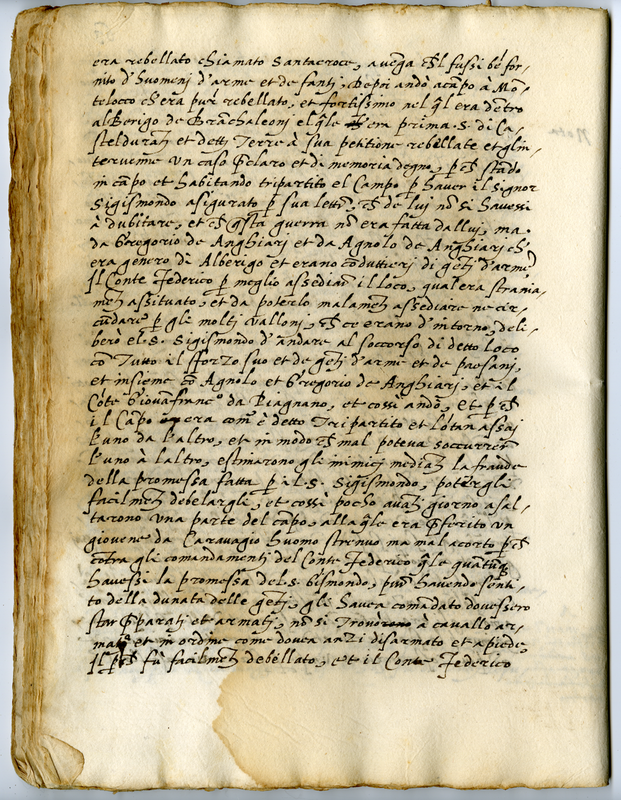 era rebellato chiamato Santacroce, avenga ch'l fussi bē for-
nito d'huomenj d'arme et de fantj, depoi andò a cāpo à Mō-
telocco ch'era purè rebellato, et fortissimo nel ql era dētro
alberigo de Brāchaleonj el qle era prima .S. di Ca-
stelduratj et dettj Terre à sua petitione rebellate et glin
tervenne un caso pclaro et di memoria degno, p ch stādo
in cāpo et habitando tripartito el Campo p haver il signor
Sigismondo asigurato p sua lettra, ch de lui nō si havessi
à dubitare, et ch qsta guerra nō era fatta da lluj, ma
da Gregorio de Anghiarj et da Agnolo de Anghiarj ch'
era genero di Alberigo et erano cōduttierj di getj d'arme,
Il Conte Federico p meglio assediar il loco, qual era strania-
metj assituato, et da poterlo malametj assediare ne cir-
cūdare p gli moltj vallonj, ch ce erano d'intorno, deli-
berò el .S. Sigismondo d'andare al soccorso di detto loco
cō Tutto il sforzo suo et de getj d'arme et de paesanj,
et insieme cō Agnolo et Gregorio de Anghiarj, et il
Cōte Giovafranc° da Piagnano, et cossì andò, et p ch
il Campo era com'è detto Tripartito et lōtan assaj
l'uno da l'altro, et in modo ch mal poteva soccurrer
l'uno à laltro, estimarono gli inimicj mediātj la fraude
della promessa fatta p il .S. Sigismondo, potergli
facilmētj debelargli, et cossì pocho avātj giorno asal-
tarono una parte del cāpo, alla qle era pferito un
giovene da Caravagio huomo strenuo ma mal acorto p ch
cōtra gli comandamentj del Conte Federico qle quātūq
havessi la promessa del .S. Gismondo, purò havendo senti-
to della dunata delle gētj, gli havea comādato dovessero
star pparatj et armatj, nō si trovorono à cavallo ar-
matj et in ordine come dovea anzi disarmato et a piede,
Il p ch fù facilmētj debèllato, et il Conte Federico